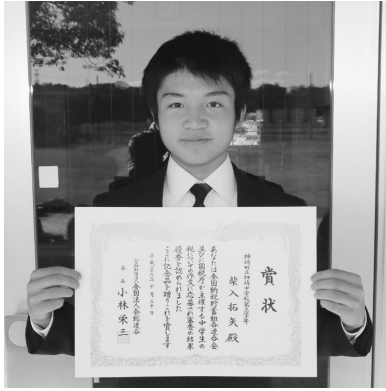 賞状
神崎町立神崎中学校第三学年
柴入拓矢殿
あなたは全国納税貯蓄組合連合会
並びに国税庁が主催する中学生の
税についての作文に応募され審査の結果
優秀と認められました
ここに記念品を贈りこれを賞します
平成二十八年十月二十日
公益財団法人全国法人会総連合
会長 小林栄三